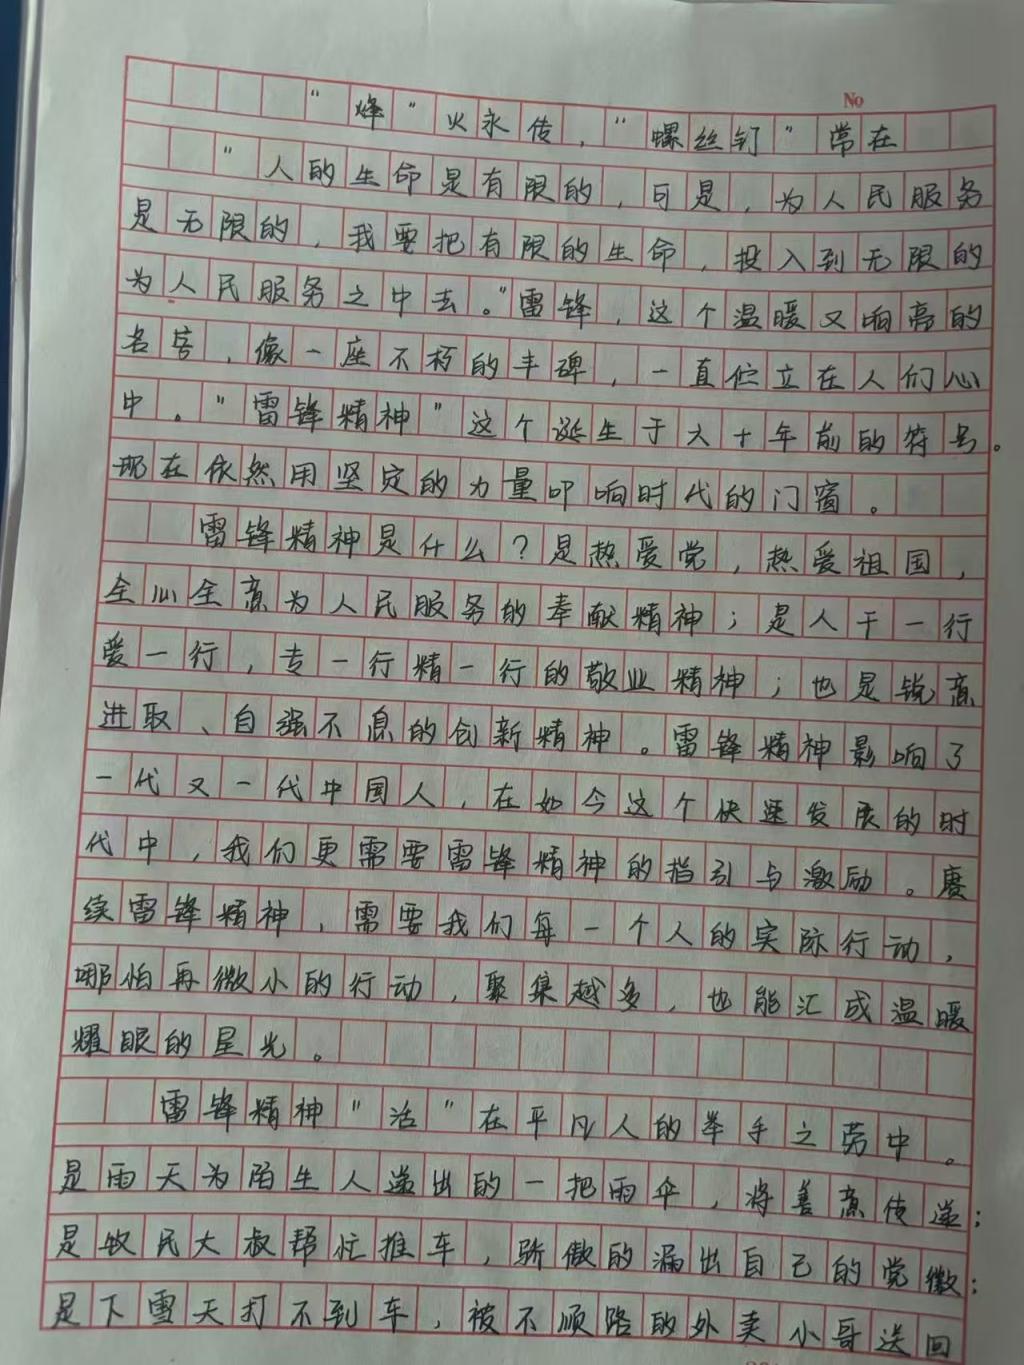 No
"烽"火永传，"螺丝钉"常在
"人的生命是有限的，可是，为人民服务
是无限的，我要把有限的生命，投入到无限的
为人民服务之中去。"雷锋，这个温暖又响亮的
名字，像一座不朽的丰碑，一直伫立在人们心
中。"雷锋精神"这个诞生于六十年前的符号。
现在依然用坚定的力量叩响时代的门窗。
雷锋精神是什么？是热爱党，热爱祖国，
全心全意为人民服务的奉献精神；是人干一行
爱一行，专一行精一行的敬业精神；也是锐意
进取、自强不息的创新精神。雷锋精神影响了
一代又一代中国人，在如今这个快速发展的时
代中，我们更需要雷锋精神的指引与激励。赓
续雷锋精神，需要我们每一个人的实际行动，
哪怕再微小的行动，聚集越多，也能汇成温暖
耀眼的星光。
雷锋精神"活"在平凡人的举手之劳中。
是雨天为陌生人递出的一把雨伞，将善意传递；
是牧民大叔帮忙推车，骄傲的漏出自己的党徽；
是下雪天打不到车，被不顺路的外卖小哥送回